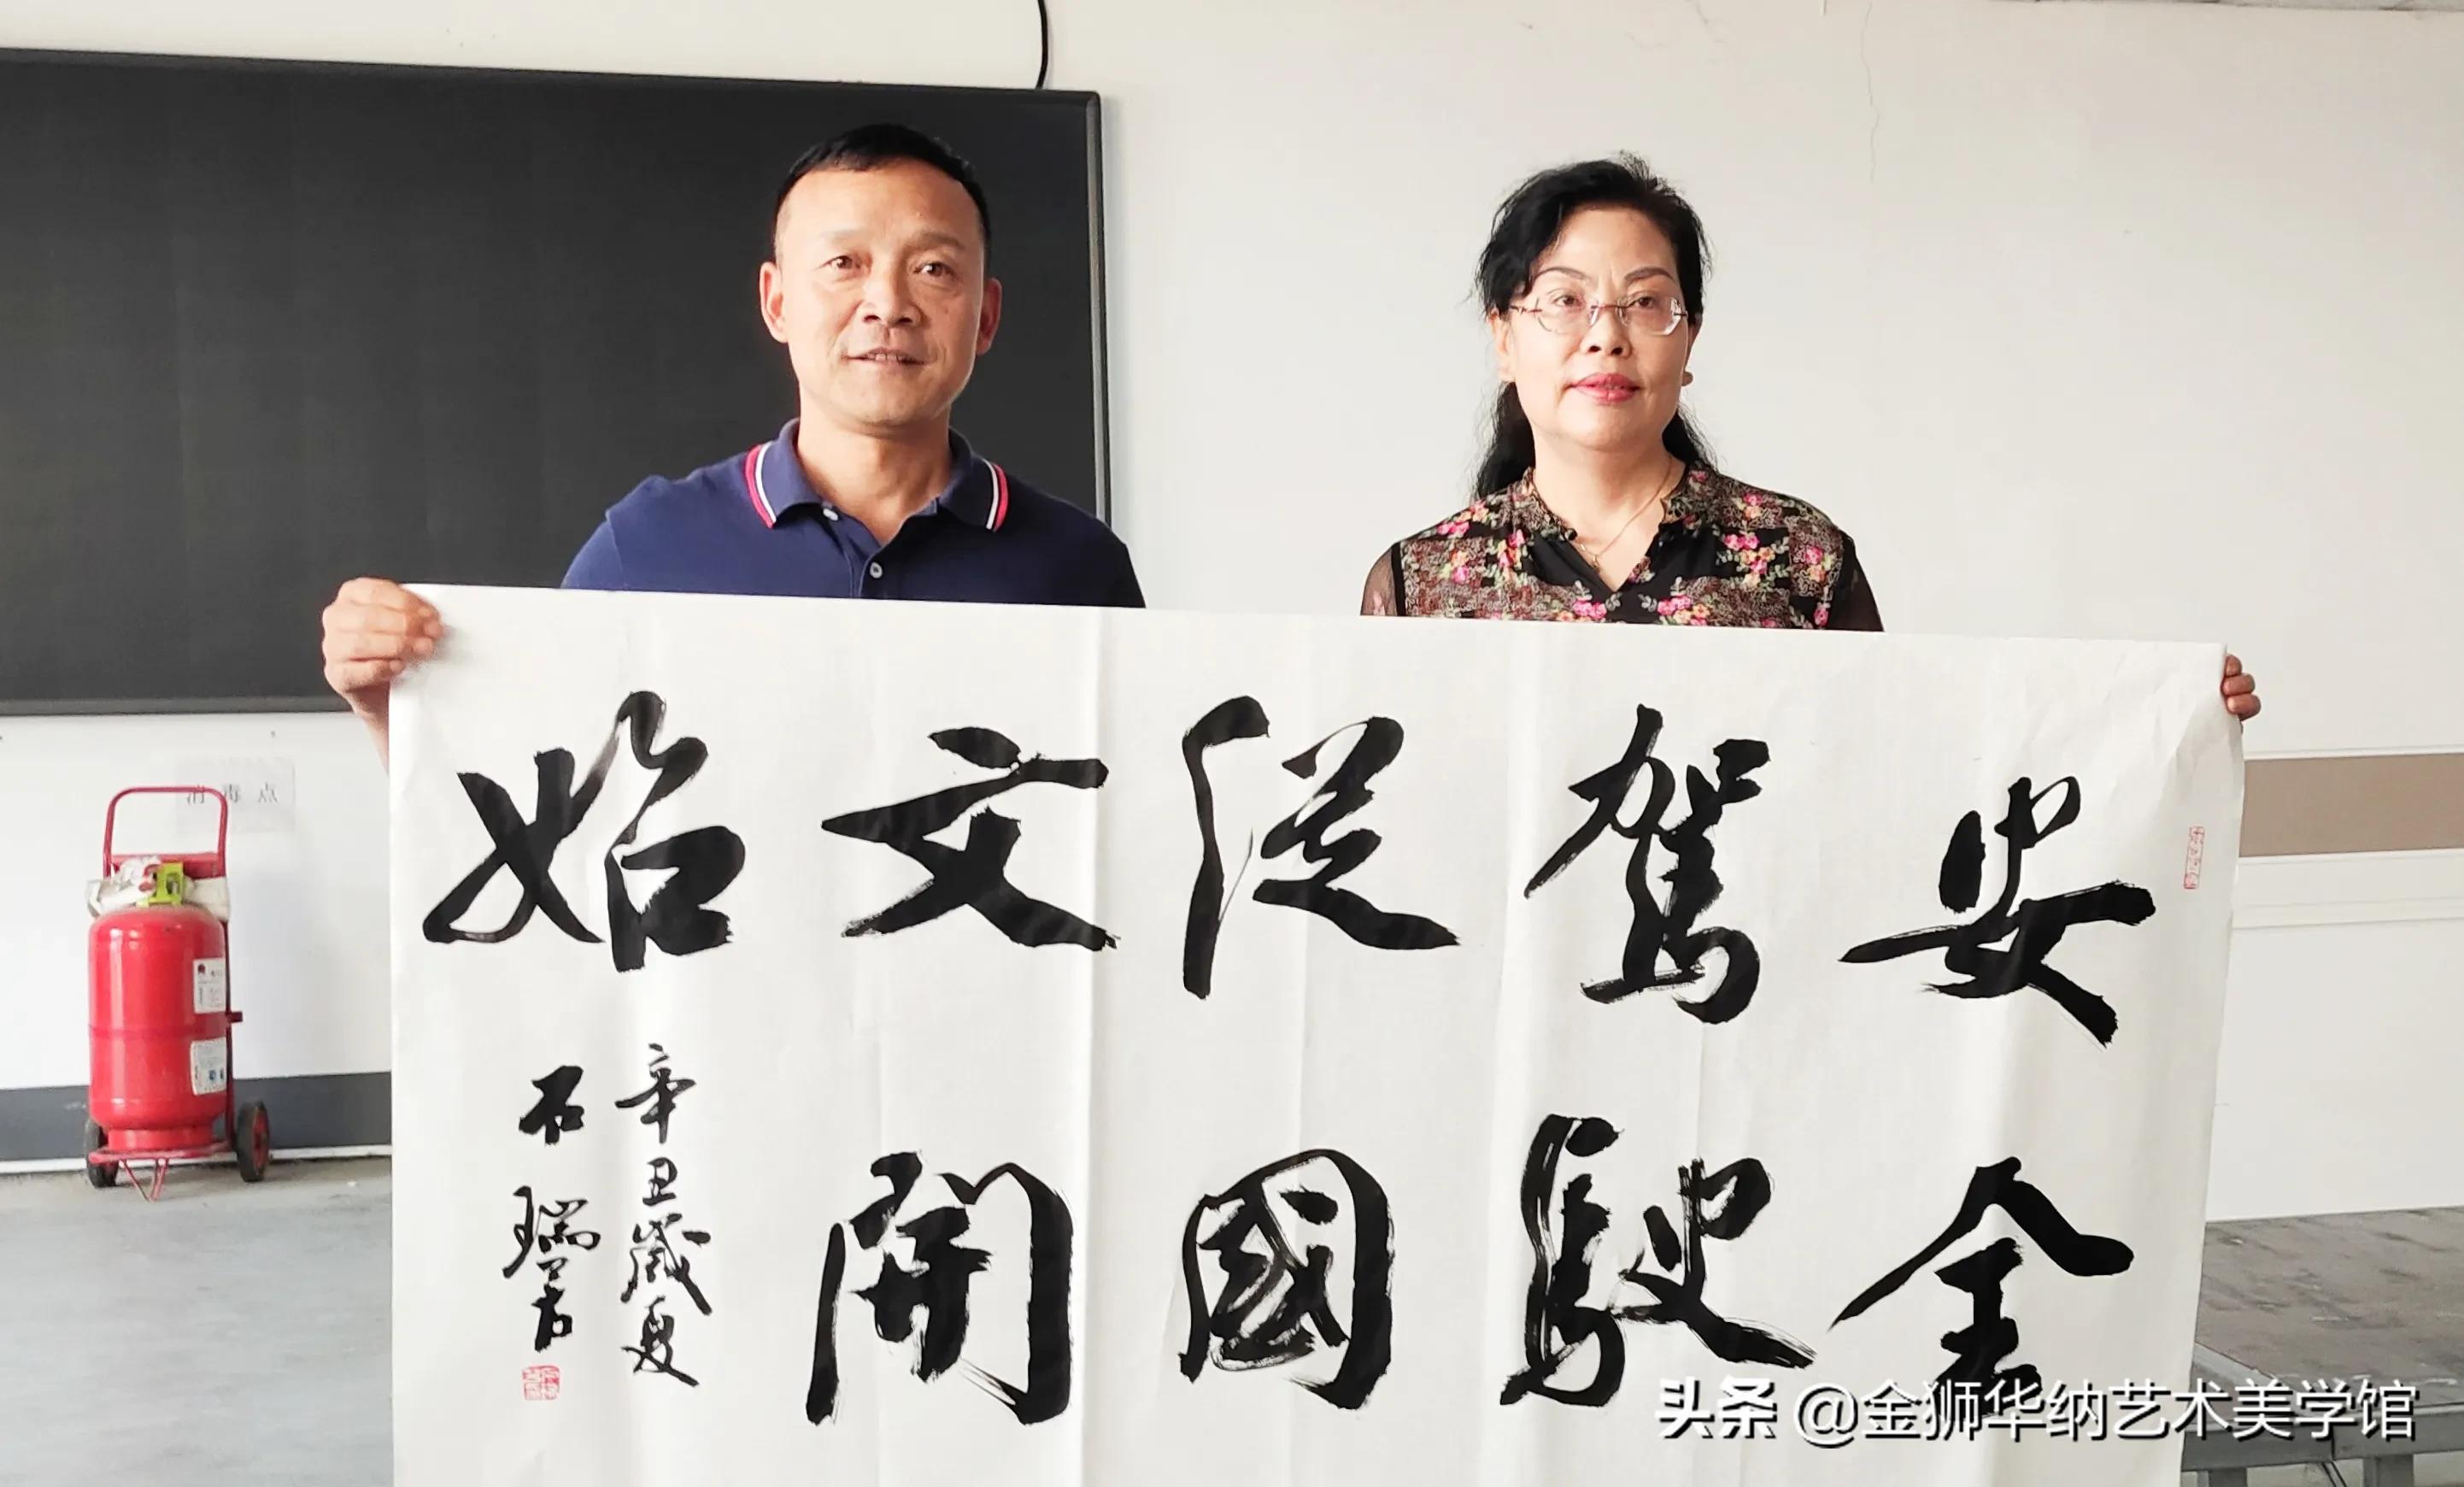 安全
驾驶
從國
文開
始
辛丑歲夏
石瑞芳
消毒点
头条 @金狮华纳艺术美学馆